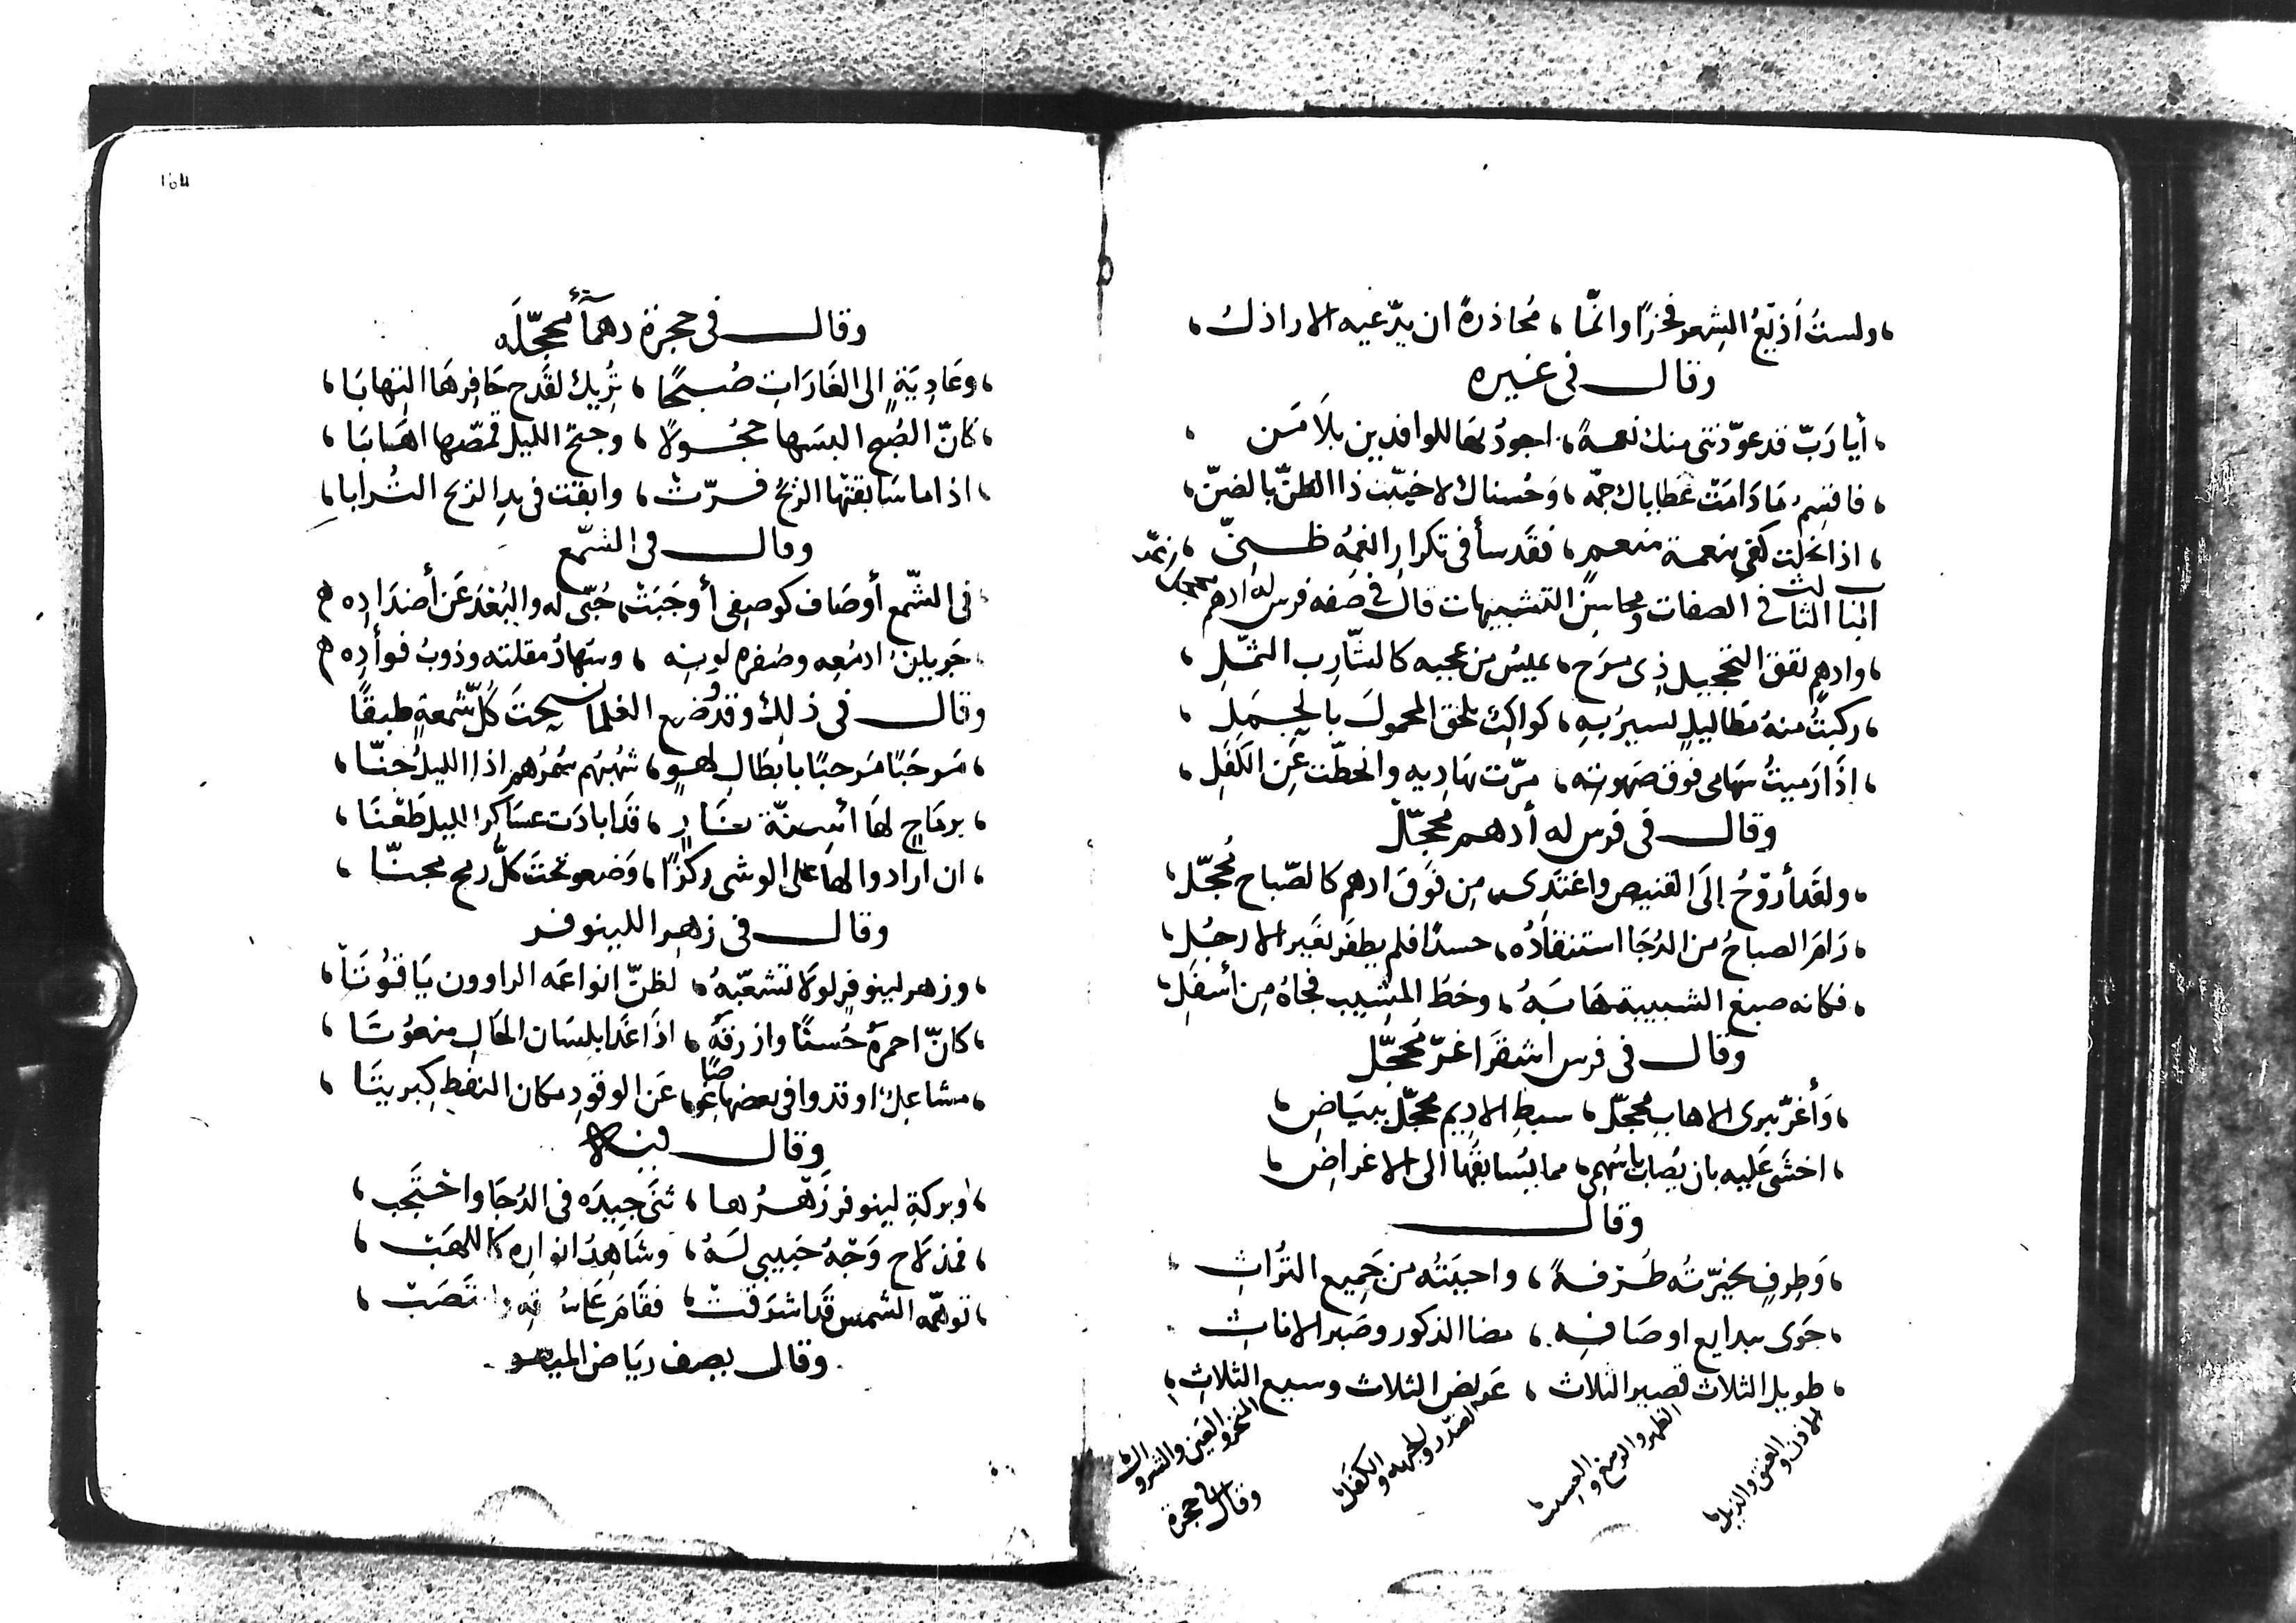 ، ولستُ أذيعُ الشِعر فخرًا وانّما ، مُحاذرةً ان يدّعيه الاراذلُ ،
وقال في غيره
، أيا رَبّ قد عوّدتنى منك نعمةً ، اجودُ بها للوافدين بلَا مَن ،
، فاقسِمُ مَا دَامَتْ عَطاياك جمّه ، وَحُسناك لاخيّبت ذا الظنّ بالضنّ ،
، اذا بخلت كفى بنعمة منعم ، فقَد سأ فى تكرار انعُمِه ظـنى ،
الباب الثالث في الصفات ومحاسِن التشبيهات قال في صفه فرس له ادهم محجل
، وادهمٍ يقق التحجيل ذِى مرَح ، يميسُ من عجبه كالشّارِب الثمّلِ ،
، ركبتُ منهُ مَطا ليلٍ تسيرُ بهِ ، كواكبٌ تلحق المحمولَ بالحِمَلِ ،
، اذَا رَميتُ سَهامى فوق صَهوته ، مرّت بهَاديه وانحطّت عَنِ الكَفَلِ ،
وقال في فرس له أدهم مُحجّلْ
، ولقَد أروّحُ إلَى القنيص واغتدى ، مِن فَوقَ ادهم كالصّباح مُحجّل ،
، رَامَ الصباحُ من الدُجَا استنقاذَه ، حسدًا فلم يظفَر بغَير الارجُلِ ،
، فكانه صبغ الشبيبة هَابَهُ ، وخطُ المَشِيب فجاهُ مِن أسفَلِ ،
وقال في فرس اشقرَ اغرّ مُحَجّل
، وَأغرّ تبرى الاهابِ محجّل ، سبطِ الادِيم محجّل ببيَاضِ ،
، اخشَى عَليه بان يُصابَ باسُهمى ، مما يُسابقُها الى الاغراضِ ،
وقال
، وَطِرفٍ تخيّرتُه طُـرْفـةً ، واحببتُه من جَمِيع التُراثِ ،
، حَوَى ببدايع اوصَافـهِ ، مضا الذكور وصَبر الاناثِ
، طويل الثلاث قصير الثلاث ، عَريض الثلاث وسيع الثلاثِ ،
الاذن والعنق والذيل
الظهر والرسغ والعسيب
الصّدر والجبهه والكفل
المنخر والعين والشروال
وقال في حجرة
164
وقال في حجرة دهمآء مُحجّلَه
، وعَادِيَةٍ الى الغَارَاتِ ضُبـحًا ، تُرِيك لقَدح حَافِرهَا التِهابَا ،
، كَانّ الصُبح البسَها حجُـولًا ، وجنح الليل قمصّها اهَابَا ،
، اذا ما سَابقتْها الريحُ فـرّتْ ، وابقَت فى يدِ الريح التُرابا ،
وقال في الشمّع
، فى الشّمع أوصَاف كوصفى أوجَبَتْ حُبّى له والبُعْدَ عَن أضدَادِه
، جَريان ادمُعِه وصُفره لونِه ، وسَهادُ مقلته وذوبُ فوأدِه
وقال في ذلك وقد وُضع الغلمان تحتَ كُلّ شمعةٍ طبقًا
، مَرحَبًا مَرحبًا بابْطَالِ لهـوٍ ، شُهبُهم سُمُرهم اذا الليل جُنّا ،
، برمَاحٍ لهَا أسِـنّة نـَارٍ ، قَد ابادَت عسَاكرا لليل طَعْنَا ،
، ان ارادوا لها على الوشى ركزًا ، وَضعو تحتَ كلّ رمح مجنّا ،
وقال في زهرِ اللينوفر
، وزهر لينوفرٍ لولَا تشعّبهُ ، لظنّ انواعَه الراوون يَاقُوتَا ،
، كَانّ احمرَهُ حُسنًا وازرقَهُ ، اذَا غَدَا بلِسَان الحَالِ منعُوتَا ،
، مشاعِلٌ اوقدوا فى بعضها عِوضًا ، عَن الوقودِ مكان النفط كِبريتَا ،
وقال فيه
، وبركةِ لينوفرٍ زَهْـرُها ، ثنَى جيدَه في الدُجَا واحتَجب ،
، فمذ لَاح وَجْهُ حَبيبي لَهُ ، وشَاهِدُ انوارِه كاللهَبْ ،
، توهّمه الشمس قَد اشرَقتْ ، فقَامَ وانتَصَبْ ،
وقال يصف ريَاض